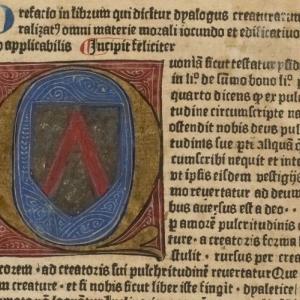 Prefacio in librum qui dicitur dyalogus creaturarum
ralizat⁹ omni materie morali iocundo et edificatiuo
applicabilis Incipit feliciter
Quoniā sicut testatur ysid
in li. de sūmo bono li. p
quarto dicens ꝙ ex pul
tudine circumscripte na
ostendit nobis deus pul
tudinis sue
cumscribi nequit et inte
vt ipsis eisdem vestigijs
mo reuertatur ad deum
bus auersus est a deo
p amorē pulcritudinis
ture · a creatoris forma
stulit · rursus per crea
corem · ad creatoris sui pulchritudinē reuertatur Que
m creature · et ꝙ sicut liber iste fingit · dyaletice